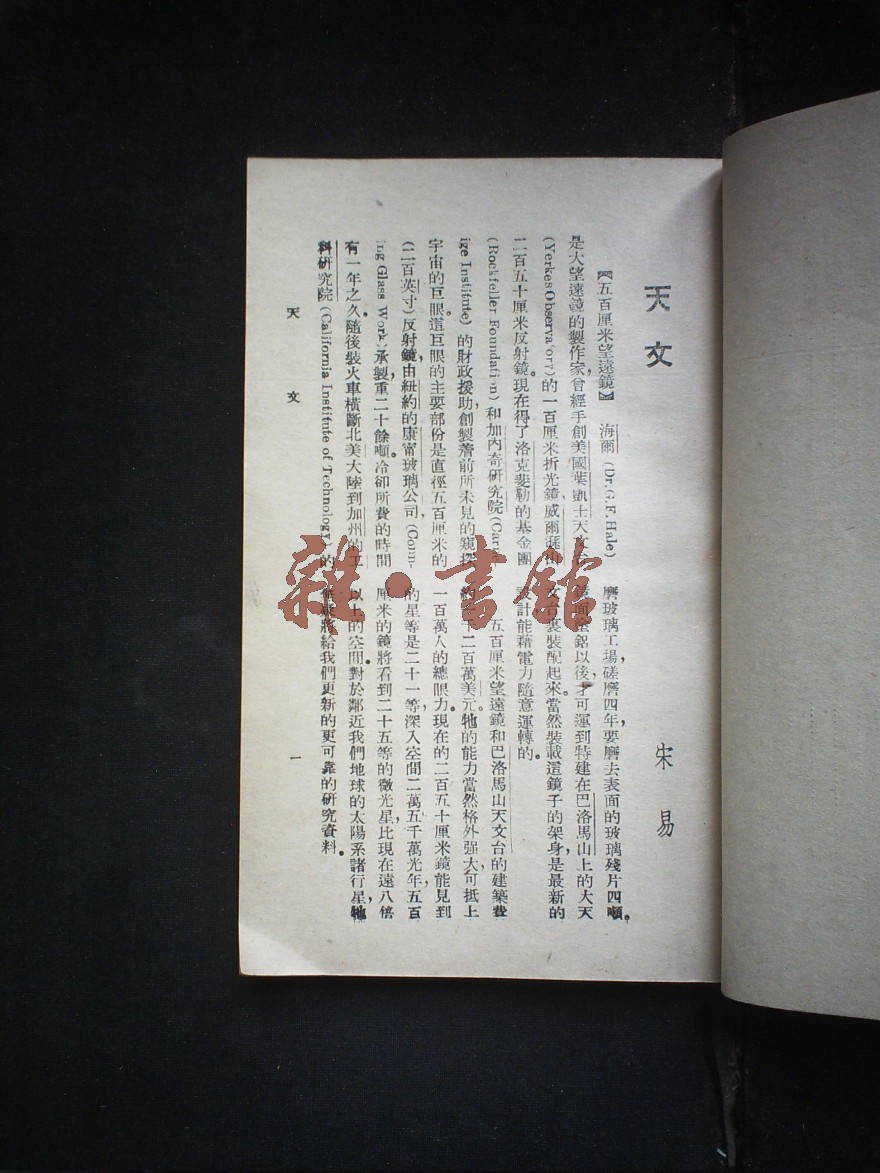 天文
宋易
【五百厘米望遠鏡】 海爾 (Dr. G. F. Hale)
是大望遠鏡的製作家，曾經手創美國葉凱士天文
(Yerkes Observatory) 的一百厘米折光鏡，威爾遜山
二百五十厘米反射鏡。現在得了洛克斐勒的基金團
(Rockfeller Foundation) 和加內奇研究院 (Carne-
ige Institute) 的財政援助，創製着前所未見的窺探
宇宙的巨眼。這巨眼的主要部份是直徑五百厘米的
(二百英寸) 反射鏡，由紐約的康甯玻璃公司 (Conn-
ing Glass Work) 承製，重二十餘噸。冷卻所費的時間
有一年之久。隨後裝火車橫斷北美大陸到加州的工
科研究院 (California Institute of Technology) 的
磨玻璃工場，磋磨四年，要磨去表面的玻璃殘片四噸。
鏡面塗鋁以後，才可運到特建在巴洛馬山上的大天
文台裏裝配起來。當然裝載這鏡子的架身，是最新的
設計，能藉電力隨意運轉的。
五百厘米望遠鏡和巴洛馬山天文台的建築費
約一千二百萬美元。牠的能力當然格外强大，可抵上
一百萬人的總眼力。現在的二百五十厘米鏡能見到
的星等是二十一等，深入空間二萬五千萬光年，五百
厘米的鏡將看到二十五等的微光星，比現在遠八倍
以上的空間。對於鄰近我們地球的太陽系諸行星，牠
將給我們更新的更可靠的研究資料。
天文
一
雜·書館